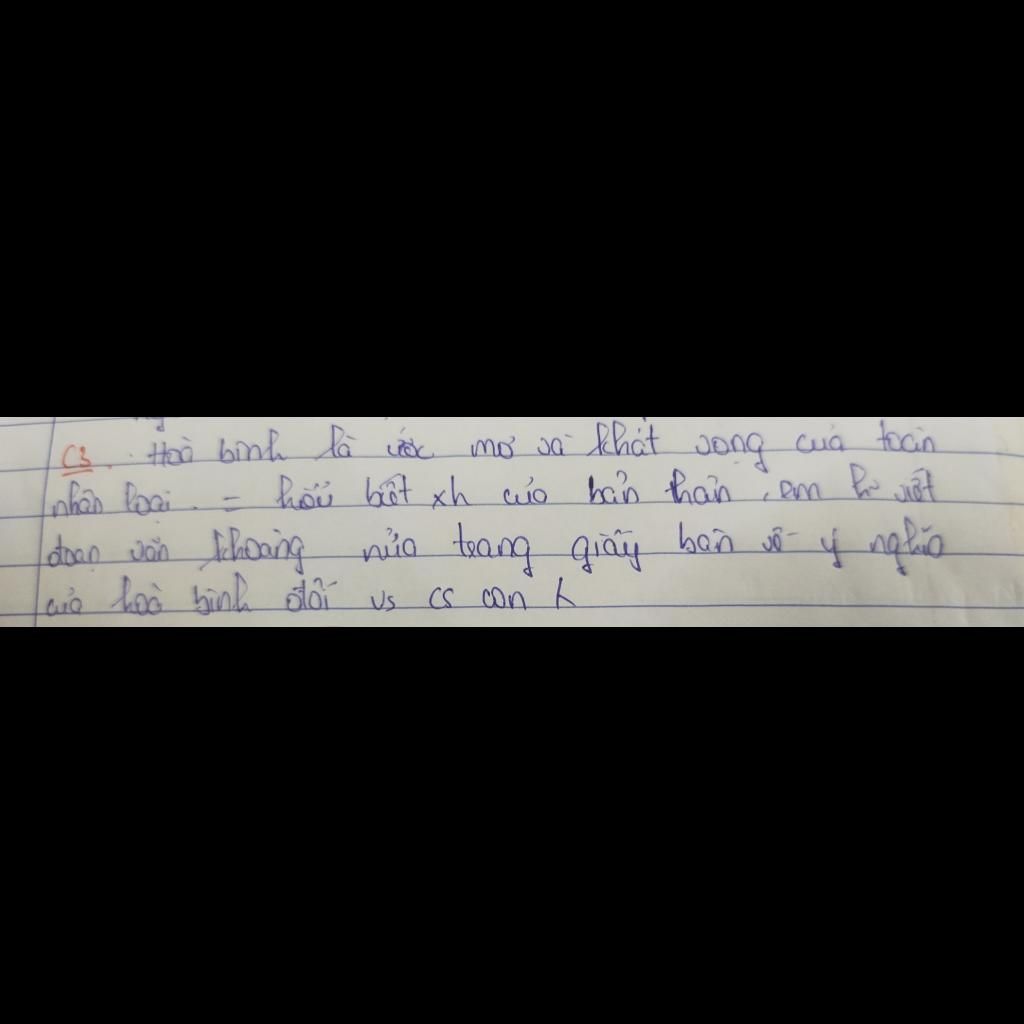 C3. Hoà bình là ước mơ và khát vọng của toàn
nhân loại. = hiểu biết xh của bản thân, em h~ viết
đoạn văn khoảng nửa trang giấy bàn về ý nghĩa
của hoà bình đối vs cs con